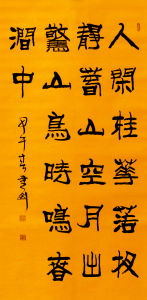 人閑桂華落夜
靜萅山空月出
驚山鳥時鳴春
澗中
甲午春書